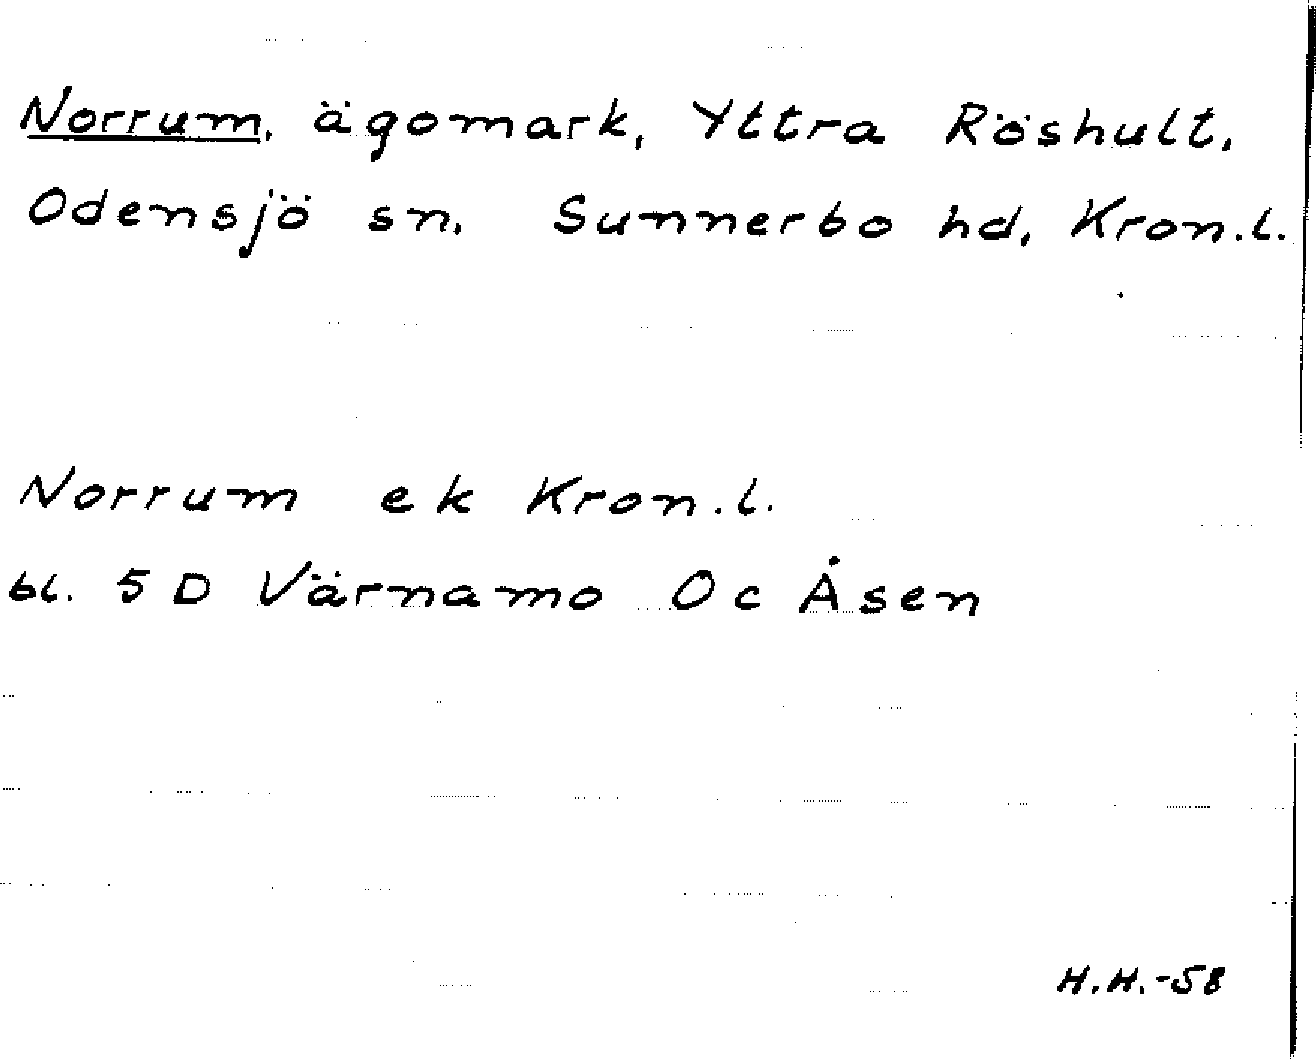 Norrum, ägomark, Yttra Röshult,
Odensjö sn. Sunnerbo hd, Kron.l.
Norrum ek Kron.l.
bl. 5 D Värnamo Oc Åsen
H.H.-58